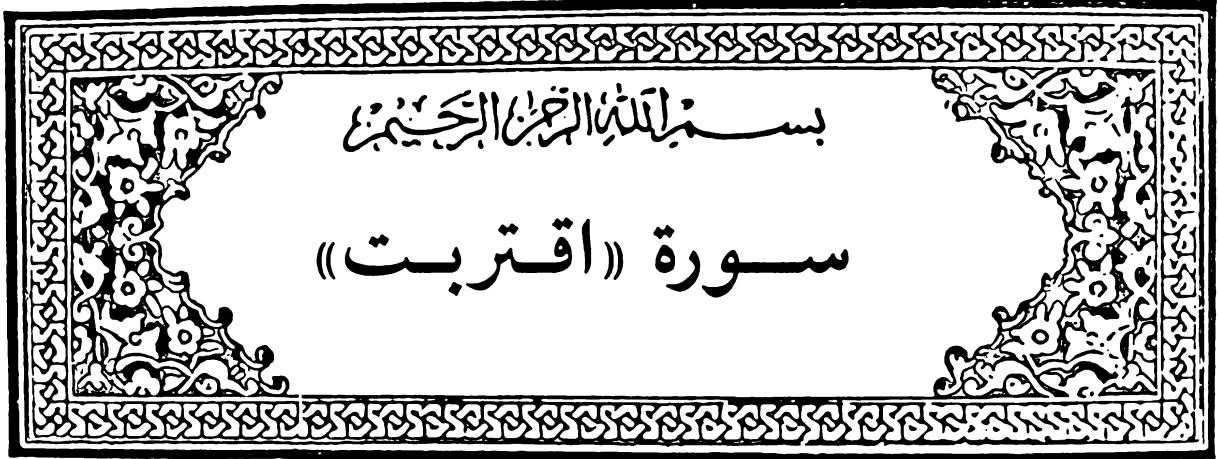 بسم الله الرحمن الرحيم
سورة «اقتربت»